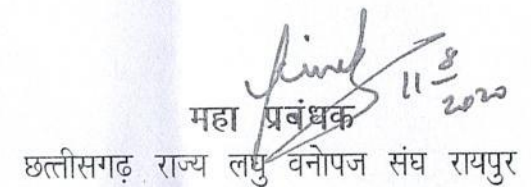 11 8
2020
महा प्रबंधक
छत्तीसगढ़ राज्य लघु वनोपज संघ रायपुर